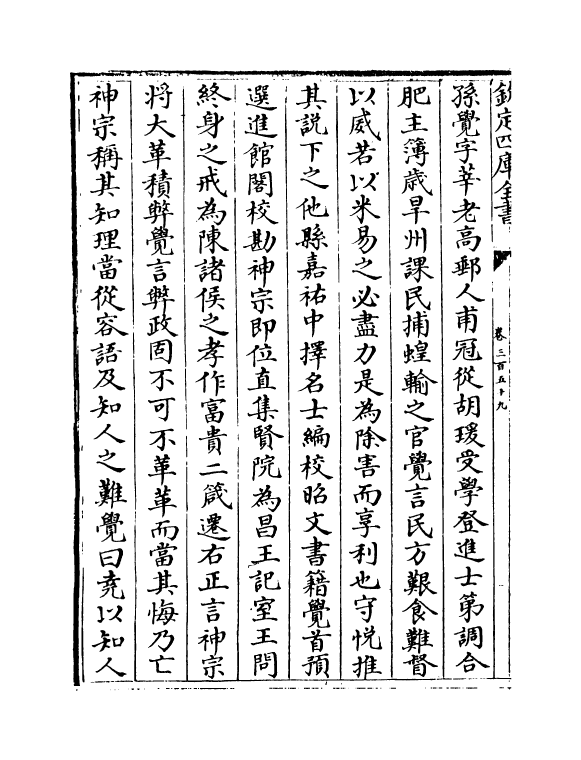 欽定四庫全書
卷三百五十九
孫覺字莘老高郵人甫冠從胡瑗受學登進士第調合
肥主簿歳旱州課民捕蝗輸之官覺言民方艱食難督
以威若以米易之必盡力是為除害而享利也守悦推
其説下之他縣嘉祐中擇名士編校昭文書籍覺首預
選進館閣校勘神宗即位直集賢院為昌王記室王問
終身之戒為陳諸侯之孝作富貴二箴遷右正言神宗
将大革積弊覺言弊政固不可不革革而當其悔乃亡
神宗稱其知理當從容語及知人之難覺曰堯以知人